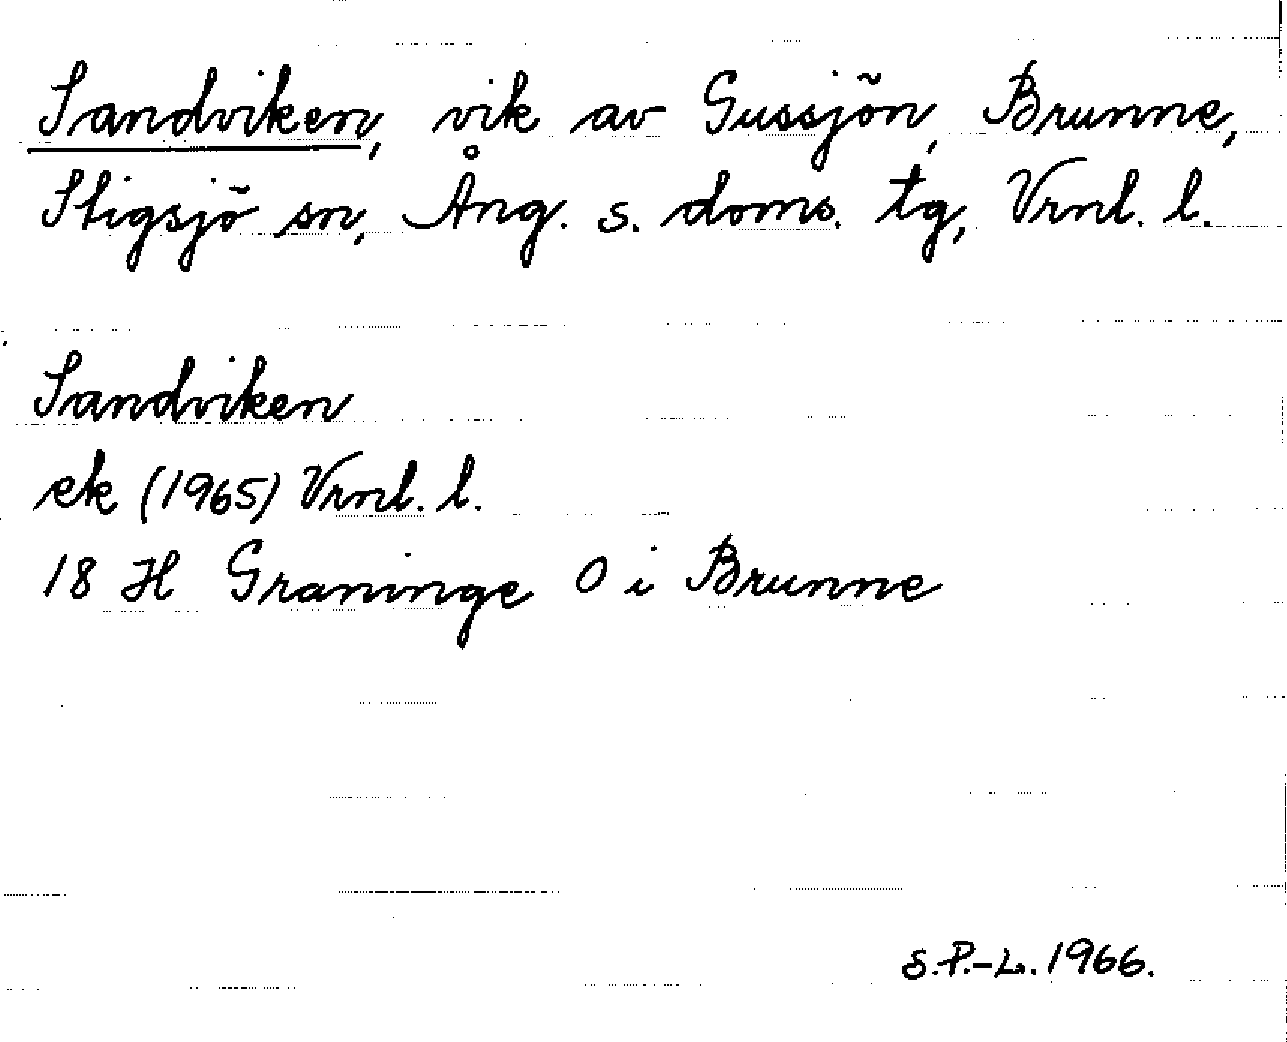 Sandviken, vik av Gussjön, Brunne,
Stigsjö sn, Ång. s. doms. tg, Vrnl. l.
Sandviken
ek (1965) Vrnl. l.
18 H Graninge O i Brunne
S.P.-L. 1966.